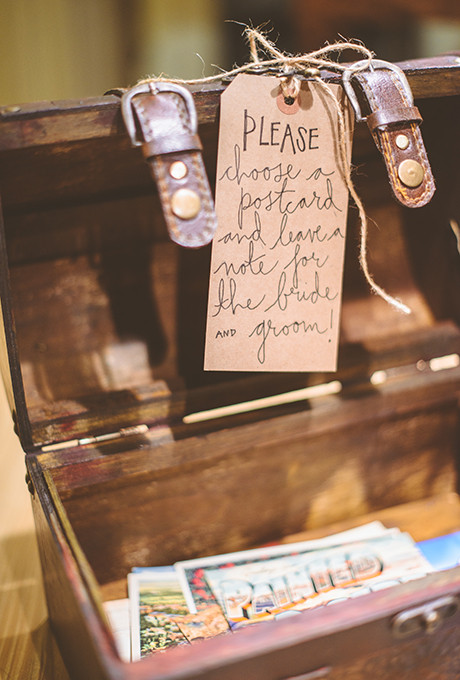 PLEASE
choose a
postcard
and leave a
note for
the bride
AND groom!
PAINTED